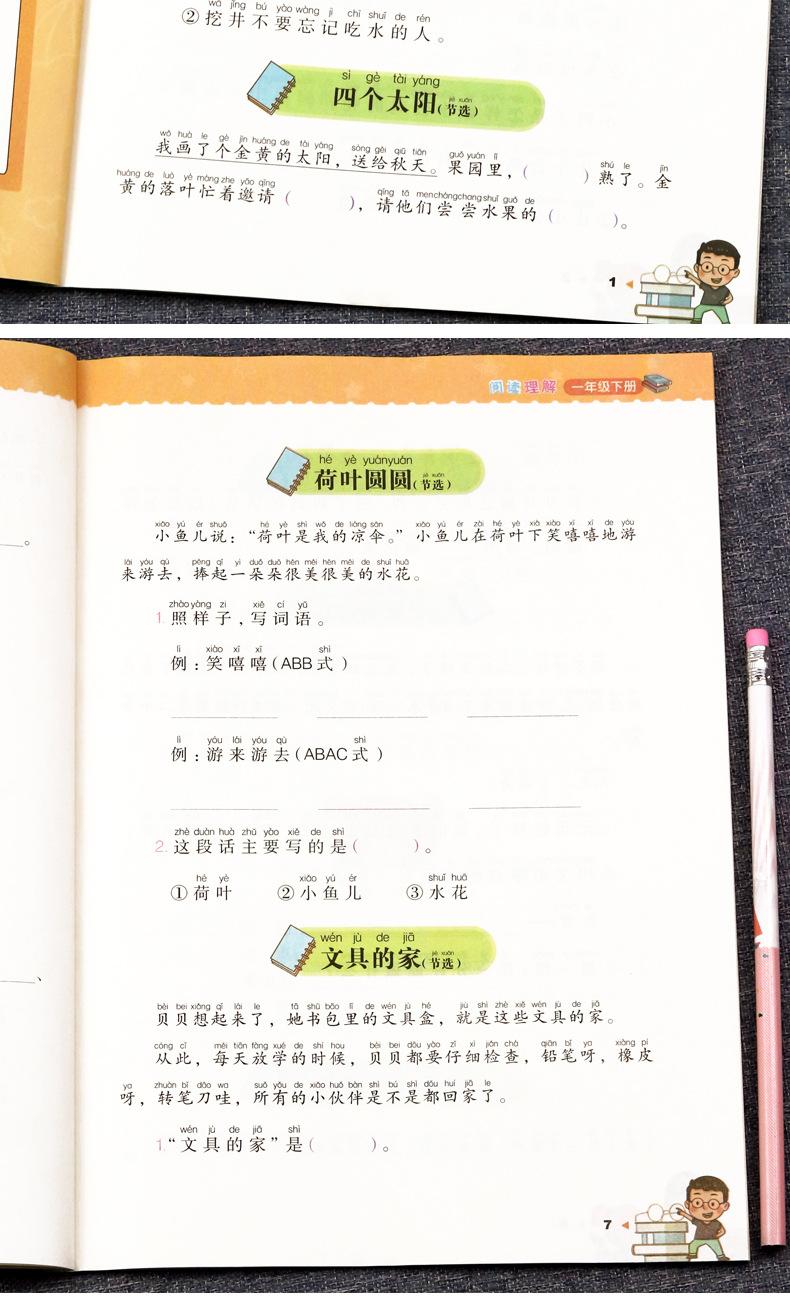 wā jǐng bú yào wàng jì chī shuǐ de rén
②挖井不要忘记吃水的人。
sì gè tài yáng jié xuǎn
四个太阳(节选)
wǒ huà le gè jīn huáng de tài yáng sòng gěi qiū tiān guǒ yuán lǐ shú le jīn
我画了个金黄的太阳，送给秋天。果园里，( )熟了。金
huáng de luò yè máng zhe yāo qǐng qǐng tā men cháng chang shuǐ guǒ de
黄的落叶忙着邀请( )，请他们尝尝水果的( )。
1
阅读理解 一年级下册
hé yè yuányuán jié xuǎn
荷叶圆圆(节选)
xiǎo yú ér shuō hé yè shì wǒ de liáng sǎn xiǎo yú ér zài hé yè xià xiào xī xī de yóu
小鱼儿说：“荷叶是我的凉伞。”小鱼儿在荷叶下笑嘻嘻地游
lái yóu qù pěng qǐ yì duǒ duǒ hěn měi hěn měi de shuǐ huā
来游去，捧起一朵朵很美很美的水花。
zhào yàng zi xiě cí yǔ
1.照样子，写词语。
lì xiào xī xī shì
例：笑嘻嘻(ABB式)
lì yóu lái yóu qù shì
例：游来游去(ABAC式)
zhè duàn huà zhǔ yào xiě de shì
2.这段话主要写的是( )。
hé yè xiǎo yú ér shuǐ huā
①荷叶 ②小鱼儿 ③水花
wén jù de jiā jié xuǎn
文具的家(节选)
bèi bei xiǎng qǐ lái le tā shū bāo lǐ de wén jù hé jiù shì zhè xiē wén jù de jiā
贝贝想起来了，她书包里的文具盒，就是这些文具的家。
cóng cǐ měi tiān fàng xué de shí hou bèi bei dōu yào zǐ xì jiǎn chá qiān bǐ ya xiàng pí
从此，每天放学的时候，贝贝都要仔细检查，铅笔呀，橡皮
ya zhuàn bǐ dāo wa suǒ yǒu de xiǎo huǒ bàn shì bú shì dōu huí jiā le
呀，转笔刀哇，所有的小伙伴是不是都回家了。
wén jù de jiā shì
1.“文具的家”是( )。
7